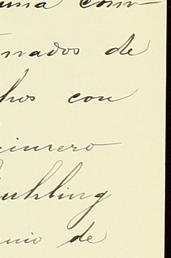 una com-
nados de
hos con
cinsero
uhling
nio de